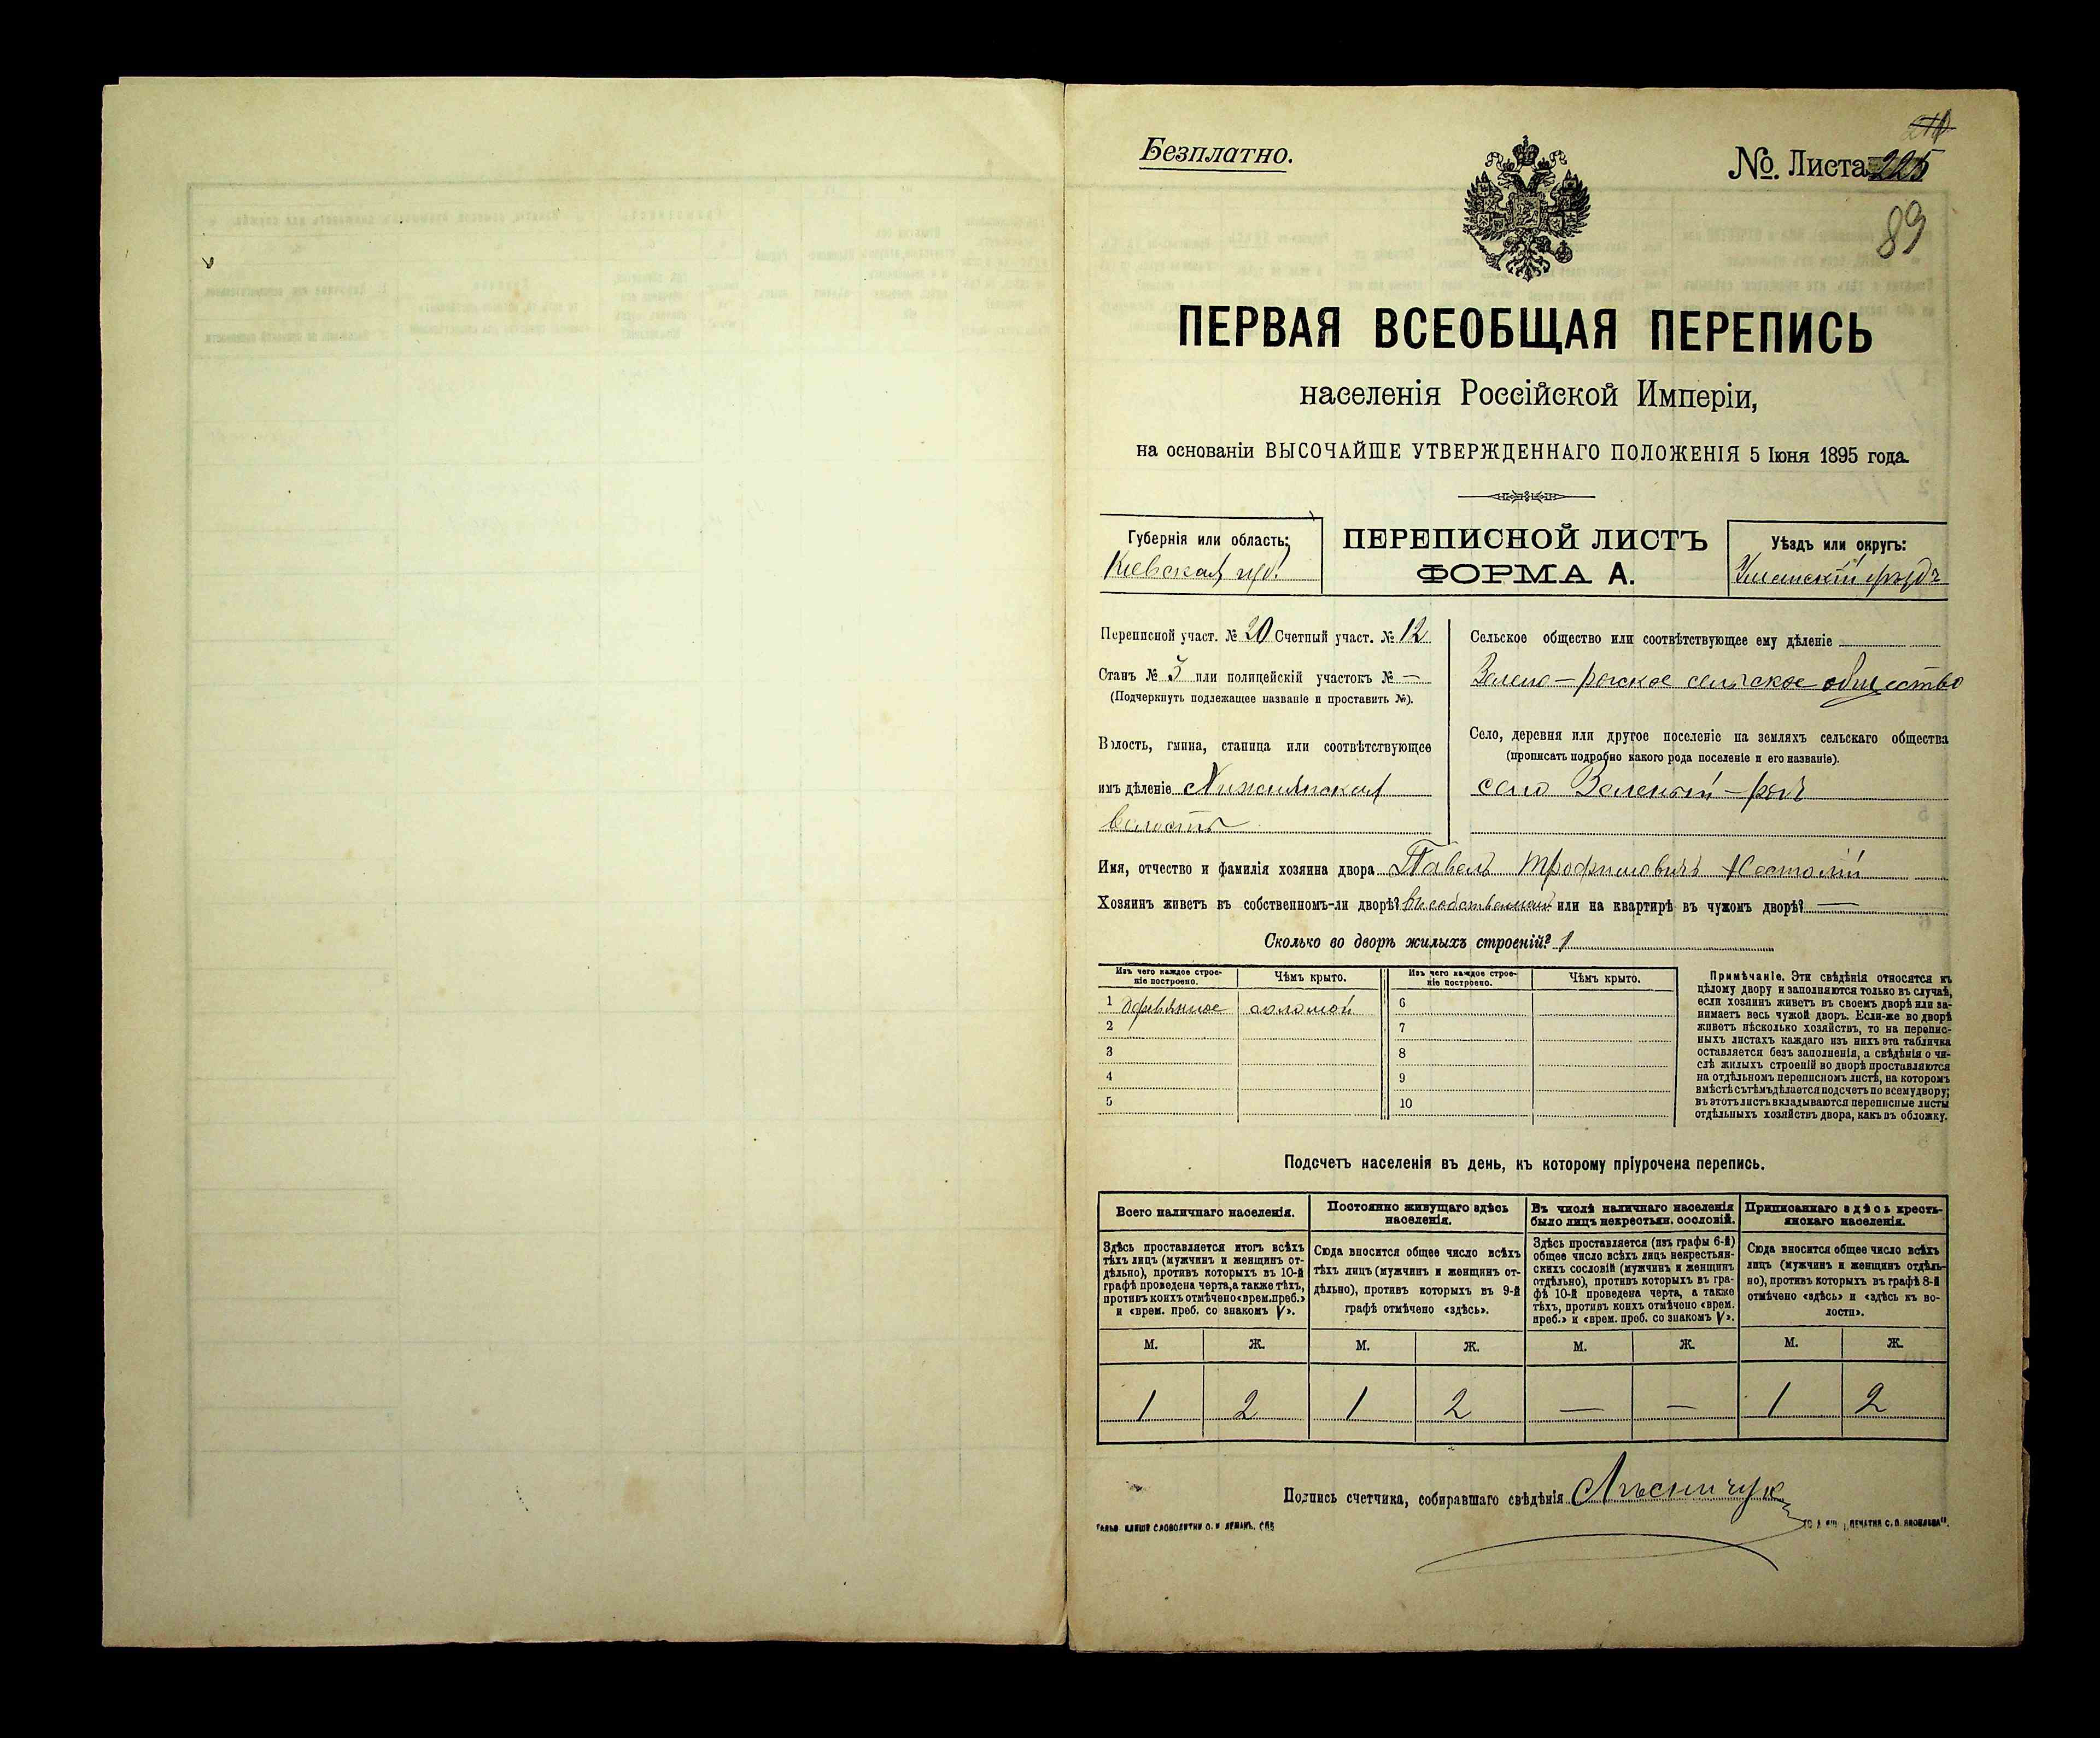 Безплатно.
№. Листа 225
89
ПЕРВАЯ ВСЕОБЩАЯ ПЕРЕПИСЬ
населенія Россійской Имперіи,
на основаніи ВЫСОЧАЙШЕ УТВЕРЖДЕННАГО ПОЛОЖЕНІЯ 5 Іюня 1895 года.
Губернія или область:
Кіевская губ.
ПЕРЕПИСНОЙ ЛИСТЪ
ФОРМА А.
Уѣздъ или округъ:
Уманскій уѣздъ
Переписной участ. № 20 Счетный участ. № 12
Станъ № 3 или полицейскій участокъ № —
(Подчеркнуть подлежащее названіе и проставить №).
Волость, гмина, станица или соотвѣтствующее
имъ дѣленіе
волость
Сельское общество или соотвѣтствующее ему дѣленіе
Зелено-рожское сельское общество
Село, деревня или другое поселеніе на земляхъ сельскаго общества
(прописать подробно какого рода поселеніе и его названіе).
село Зеленый-рогъ
Имя, отчество и фамилія хозяина двора Павелъ Трофимовичъ
Хозяинъ живетъ въ собственномъ-ли дворѣ? въ собственномъ или на квартирѣ въ чужомъ дворѣ? —
Сколько во дворѣ жилыхъ строеній? 1
Изъ чего каждое строе-
ніе построено.
Чѣмъ крыто.
Изъ чего каждое строе-
ніе построено.
Чѣмъ крыто.
1 деревянное соломой 6
2 7
3 8
4 9
5 10
Примѣчаніе. Эти свѣдѣнія относятся къ
цѣлому двору и заполняются только въ случаѣ,
если хозяинъ живетъ въ своемъ дворѣ или за-
нимаетъ весь чужой дворъ. Если-же во дворѣ
живетъ нѣсколько хозяйствъ, то на перепис-
ныхъ листахъ каждаго изъ нихъ эта табличка
оставляется безъ заполненія, а свѣдѣнія о чи-
слѣ жилыхъ строеній во дворѣ проставляются
на отдѣльномъ переписномъ листѣ, на которомъ
вмѣстѣ съ тѣмъ дѣлается подсчетъ по всему двору;
въ этотъ листъ вкладываются переписные листы
отдѣльныхъ хозяйствъ двора, какъ въ обложку.
Подсчетъ населенія въ день, къ которому пріурочена перепись.
Всего наличнаго населенія.
Здѣсь проставляется итогъ всѣхъ
тѣхъ лицъ (мужчинъ и женщинъ от-
дѣльно), противъ которыхъ въ 10-й
графѣ проведена черта, а также тѣхъ,
противъ коихъ отмѣчено «врем. преб.»
и «врем. преб. со знакомъ V».
Постоянно живущаго здѣсь
населенія.
Сюда вносится общее число всѣхъ
тѣхъ лицъ (мужчинъ и женщинъ от-
дѣльно), противъ которыхъ въ 9-й
графѣ отмѣчено «здѣсь».
Въ числѣ наличнаго населенія
было лицъ некрестьян. сословій.
Здѣсь проставляется (изъ графы 6-й)
общее число всѣхъ лицъ некрестьян-
скихъ сословій (мужчинъ и женщинъ
отдѣльно), противъ которыхъ въ гра-
фѣ 10-й проведена черта, а также
тѣхъ, противъ коихъ отмѣчено «врем.
преб.» и «врем. преб. со знакомъ V».
Приписаннаго здѣсь кресть-
янскаго населенія.
Сюда вносится общее число всѣхъ
лицъ (мужчинъ и женщинъ отдѣль-
но), противъ которыхъ въ графѣ 8-й
отмѣчено «здѣсь» и «здѣсь къ во-
лости».
М. Ж. М. Ж. М. Ж. М. Ж.
1 2 1 2 — — 1 2
Подпись счетчика, собиравшаго свѣдѣнія